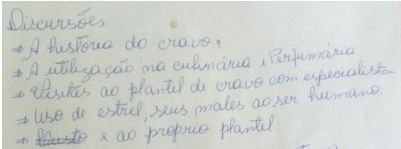 Discursões
→ A história do cravo.
→ A utilização na culinária e Perfumária
→ Visites ao plantil de cravo com especialista
→ uso de estrel, seus males ao ser humano.
→ e ao próprio plantil.